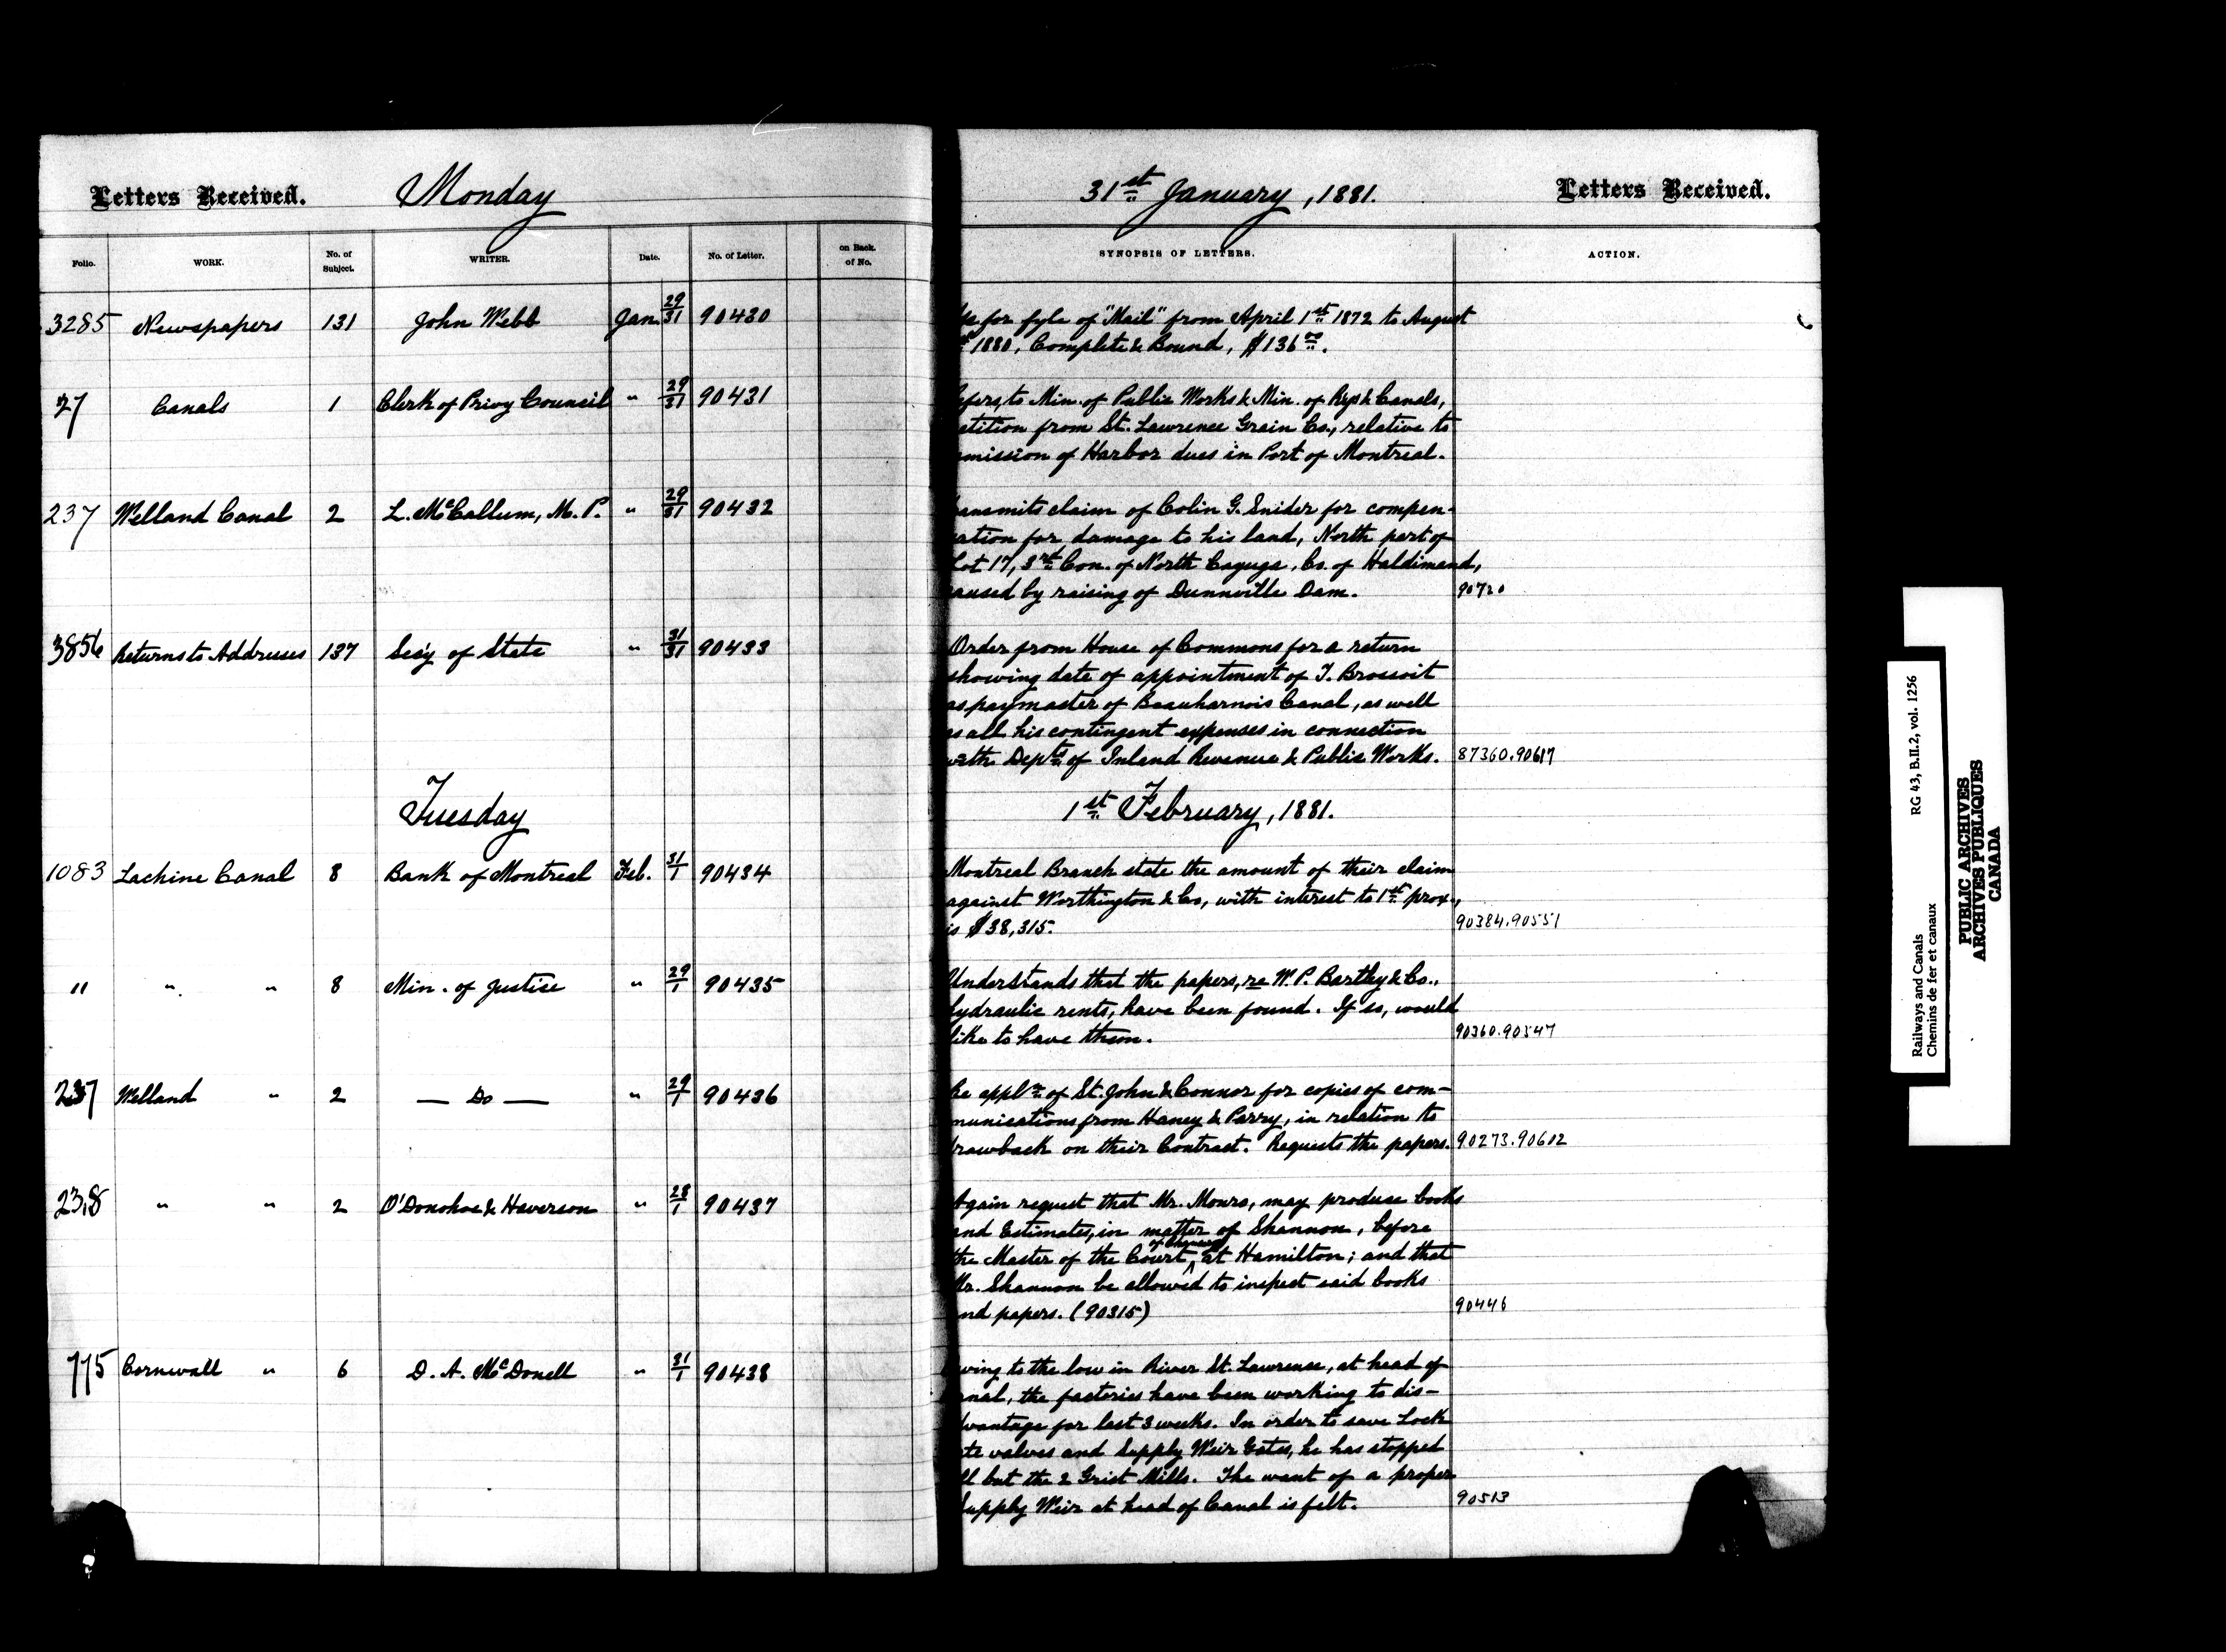 Letters Received. Monday 31st January, 1881. Letters Received.
Folio. WORK. No. of Subject. WRITER. Date. No. of Letter. on Back. of No. SYNOPSIS OF LETTERS. ACTION.
3285 Newspapers 131 John Webb Jan. 29/31 90430 for fyle of "Mail" from April 1st 1872 to August
1880, Complete & Bound, $136.00.
27 Canals 1 Clerk of Privy Council " 29/31 90431 to Min. of Public Works & Min. of Rys & Canals,
etition from St. Lawrence Grain Co., relative to
mission of Harbor dues in Port of Montreal.
237 Welland Canal 2 L. McCallum, M.P. " 29/31 90432 ansmits claim of Colin G. Snider for compen-
sation for damage to his land, North part of
Lot 17, 3rd Con. of North Cayuga, Co. of Haldimand,
caused by raising of Dunnville Dam. 90720
3856 Returns to Addresses 137 Sec'y of State " 31/31 90433 Order from House of Commons for a return
showing date of appointment of T. Brossoit
as paymaster of Beauharnois Canal, as well
as all his contingent expenses in connection
with Depts of Inland Revenue & Public Works. 87360.90617
Tuesday 1st February, 1881.
1083 Lachine Canal 8 Bank of Montreal Feb. 31/1 90434 Montreal Branch state the amount of their claim
against Worthington & Co, with interest to 1st prox.,
is $38,315. 90384.90551
" " " 8 Min. of Justice " 29/1 90435 Understands that the papers, re W. P. Bartley & Co.,
hydraulic rents, have been found. If so, would
like to have them. 90360.90547
237 Welland " 2 — Do — " 29/1 90436 Re appln of St. John & Connor for copies of com-
munications from Haney & Parry, in relation to
drawback on their Contract. Requests the papers. 90273.90602
238 " " 2 O'Donohoe & Haverson " 28/1 90437 Again request that Mr. Monro, may produce books
and Estimates, in matter of Shannon, before
the Master of the Court at Hamilton; and that
Mr. Shannon be allowed to inspect said books
and papers. (90315) 90446
775 Cornwall " 6 D. A. McDonell " 31/1 90438 wing to the low in River St. Lawrence, at head of
anal, the factories have been working to dis-
dvantage for last 3 weeks. In order to save Lock
te valves and Supply Weir Gates, he has stopped
ll but the 2 Grist Mills. The want of a proper
Supply Weir at head of Canal is felt. 90513
Railways and Canals RG 43, B.II.2, vol. 1256
Chemins de fer et canaux
PUBLIC ARCHIVES
ARCHIVES PUBLIQUES
CANADA